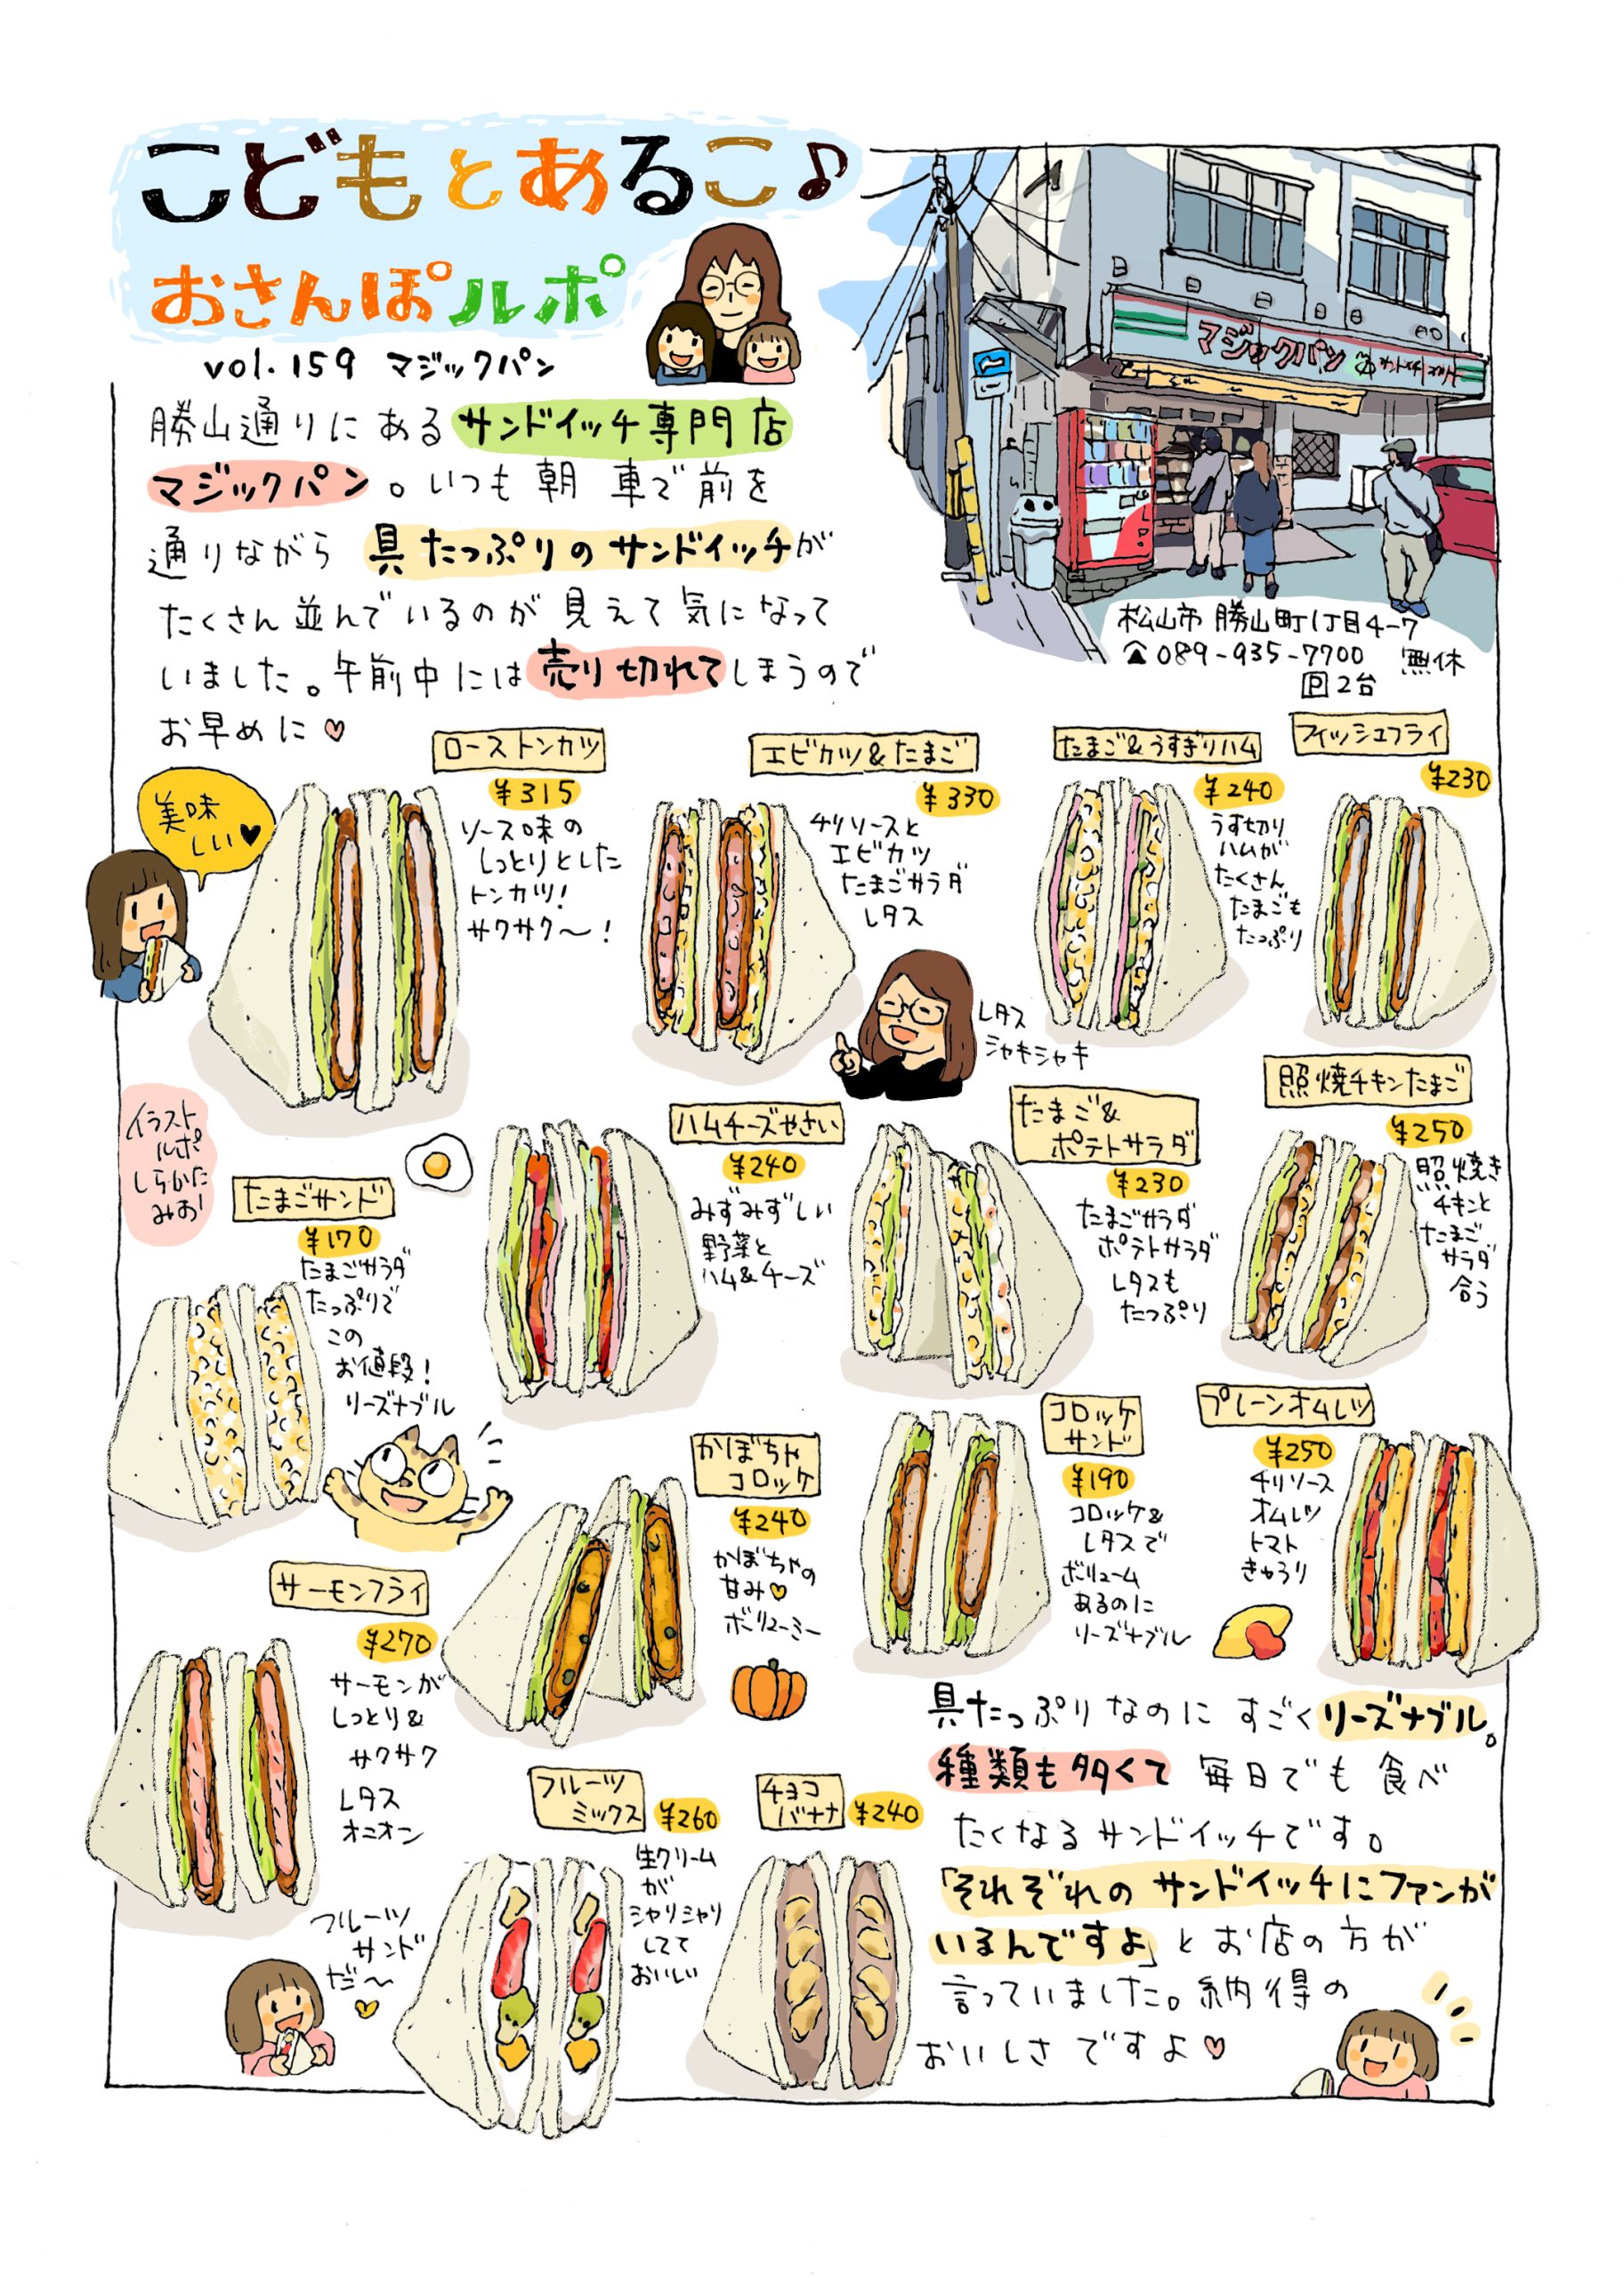 こどもとあるこ♪
おさんぽルポ
vol.159 マジックパン
勝山通りにあるサンドイッチ専門店
マジックパン。いつも朝 車で前を
通りながら 具たっぷりのサンドイッチが
たくさん並んでいるのが見えて気になって
いました。午前中には売り切れてしまうので
お早めに♡
マジックパン
松山市 勝山町1丁目4-7
☎089-935-7700 無休
回2台
美味
しい♥
ローストンカツ
¥315
ソース味の
しっとりとした
トンカツ!
サクサク〜!
エビカツ&たまご
¥330
チリソースと
エビカツ
たまごサラダ
レタス
たまご&うすぎりハム
¥240
うす切り
ハムが
たくさん
たまごも
たっぷり
フィッシュフライ
¥230
レタス
シャキシャキ
イラスト
ルポ
しらかた
みお
たまごサンド
¥170
たまごサラダ
たっぷりで
この
お値段!
リーズナブル
ハムチーズやさい
¥240
みずみずしい
野菜と
ハム&チーズ
たまご&
ポテトサラダ
¥230
たまごサラダ
ポテトサラダ
レタスも
たっぷり
照焼チキンたまご
¥250
照焼き
チキンと
たまご
サラダ
合う
かぼちゃ
コロッケ
¥240
かぼちゃの
甘み♡
ボリューミー
コロッケ
サンド
¥190
コロッケ&
レタスで
ボリューム
あるのに
リーズナブル
プレーンオムレツ
¥250
チリソース
オムレツ
トマト
きゅうり
サーモンフライ
¥270
サーモンが
しっとり&
サクサク
レタス
オニオン
フルーツ
ミックス
¥260
生クリーム
が
シャリシャリ
してて
おいしい
チョコ
バナナ
¥240
フルーツ
サンド
だ〜
具たっぷりなのに すごくリーズナブル。
種類も多くて 毎日でも食べ
たくなるサンドイッチです。
「それぞれのサンドイッチにファンが
いるんですよ」とお店の方が
言っていました。納得の
おいしさですよ♡